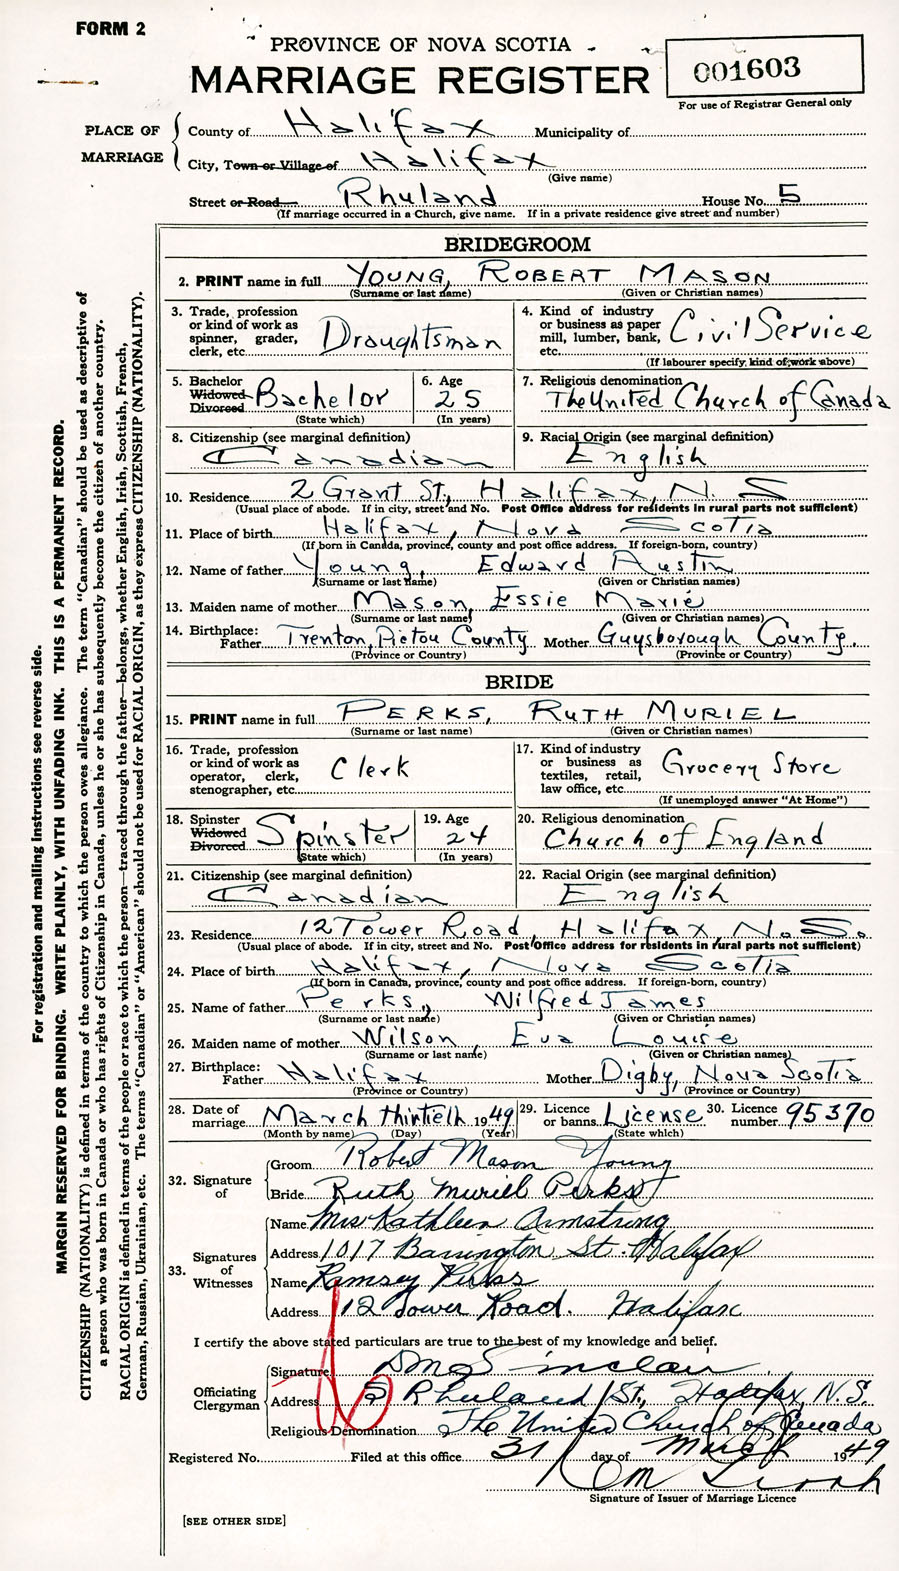 FORM 2
PROVINCE OF NOVA SCOTIA
MARRIAGE REGISTER
001603
For use of Registrar General only
PLACE OF MARRIAGE
County of Halifax Municipality of
City, Town or Village of Halifax
(Give name)
Street or Road Rhuland House No. 5
(If marriage occurred in a Church, give name. If in a private residence give street and number)
BRIDEGROOM
2. PRINT name in full YOUNG, ROBERT MASON
(Surname or last name) (Given or Christian names)
3. Trade, profession or kind of work as spinner, grader, clerk, etc. Draughtsman
4. Kind of industry or business as paper mill, lumber, bank, etc. Civil Service
(If labourer specify kind of work above)
5. Bachelor Widowed Divorced Bachelor
(State which)
6. Age 25
(In years)
7. Religious denomination
The United Church of Canada
8. Citizenship (see marginal definition)
Canadian
9. Racial Origin (see marginal definition)
English
10. Residence 2 Grant St., Halifax, N. S
(Usual place of abode. If in city, street and No. Post Office address for residents in rural parts not sufficient)
11. Place of birth Halifax, Nova Scotia
(If born in Canada, province, county and post office address. If foreign-born, country)
12. Name of father Young, Edward Austin
(Surname or last name) (Given or Christian names)
13. Maiden name of mother Mason, Essie Marie
(Surname or last name) (Given or Christian names)
14. Birthplace: Father Trenton, Pictou County Mother Guysborough County.
(Province or Country) (Province or Country)
BRIDE
15. PRINT name in full PERKS, RUTH MURIEL
(Surname or last name) (Given or Christian names)
16. Trade, profession or kind of work as operator, clerk, stenographer, etc. Clerk
17. Kind of industry or business as textiles, retail, law office, etc. Grocery Store
(If unemployed answer "At Home")
18. Spinster Widowed Divorced Spinster
(State which)
19. Age 24
(In years)
20. Religious denomination
Church of England
21. Citizenship (see marginal definition)
Canadian
22. Racial Origin (see marginal definition)
English
23. Residence 12 Tower Road, Halifax, N.S.
(Usual place of abode. If in city, street and No. Post Office address for residents in rural parts not sufficient)
24. Place of birth Halifax, Nova Scotia
(If born in Canada, province, county and post office address. If foreign-born, country)
25. Name of father Perks, Wilfred James
(Surname or last name) (Given or Christian names)
26. Maiden name of mother Wilson, Eva Louise
(Surname or last name) (Given or Christian names)
27. Birthplace: Father Halifax Mother Digby, Nova Scotia
(Province or Country) (Province or Country)
28. Date of marriage March thirtieth 1949
(Month by name) (Day) (Year)
29. Licence or banns License
(State which)
30. Licence number 95370
32. Signature of
Groom Robert Mason Young
Bride Ruth Muriel Perks
33. Signatures of Witnesses
Name Mrs Kathleen Armstrong
Address 1017 Barrington St. Halifax
Name Ramsey Perks
Address 112 Tower Road. Halifax
I certify the above stated particulars are true to the best of my knowledge and belief.
Officiating Clergyman
Signature Sinclair
Address 5 Rhuland St., Halifax, N.S.
Religious Denomination The United Church of Canada
Registered No. Filed at this office 31 day of March 1949
Signature of Issuer of Marriage Licence
[SEE OTHER SIDE]
For registration and mailing instructions see reverse side.
MARGIN RESERVED FOR BINDING. WRITE PLAINLY, WITH UNFADING INK. THIS IS A PERMANENT RECORD.
CITIZENSHIP (NATIONALITY) is defined in terms of the country to which the person owes allegiance. The term "Canadian" should be used as descriptive of
a person who was born in Canada or who has rights of Citizenship in Canada, unless he or she has subsequently become the citizen of another country.
RACIAL ORIGIN is defined in terms of the people or race to which the person—traced through the father—belongs, whether English, Irish, Scottish, French,
German, Russian, Ukrainian, etc. The terms "Canadian" or "American" should not be used for RACIAL ORIGIN, as they express CITIZENSHIP (NATIONALITY).